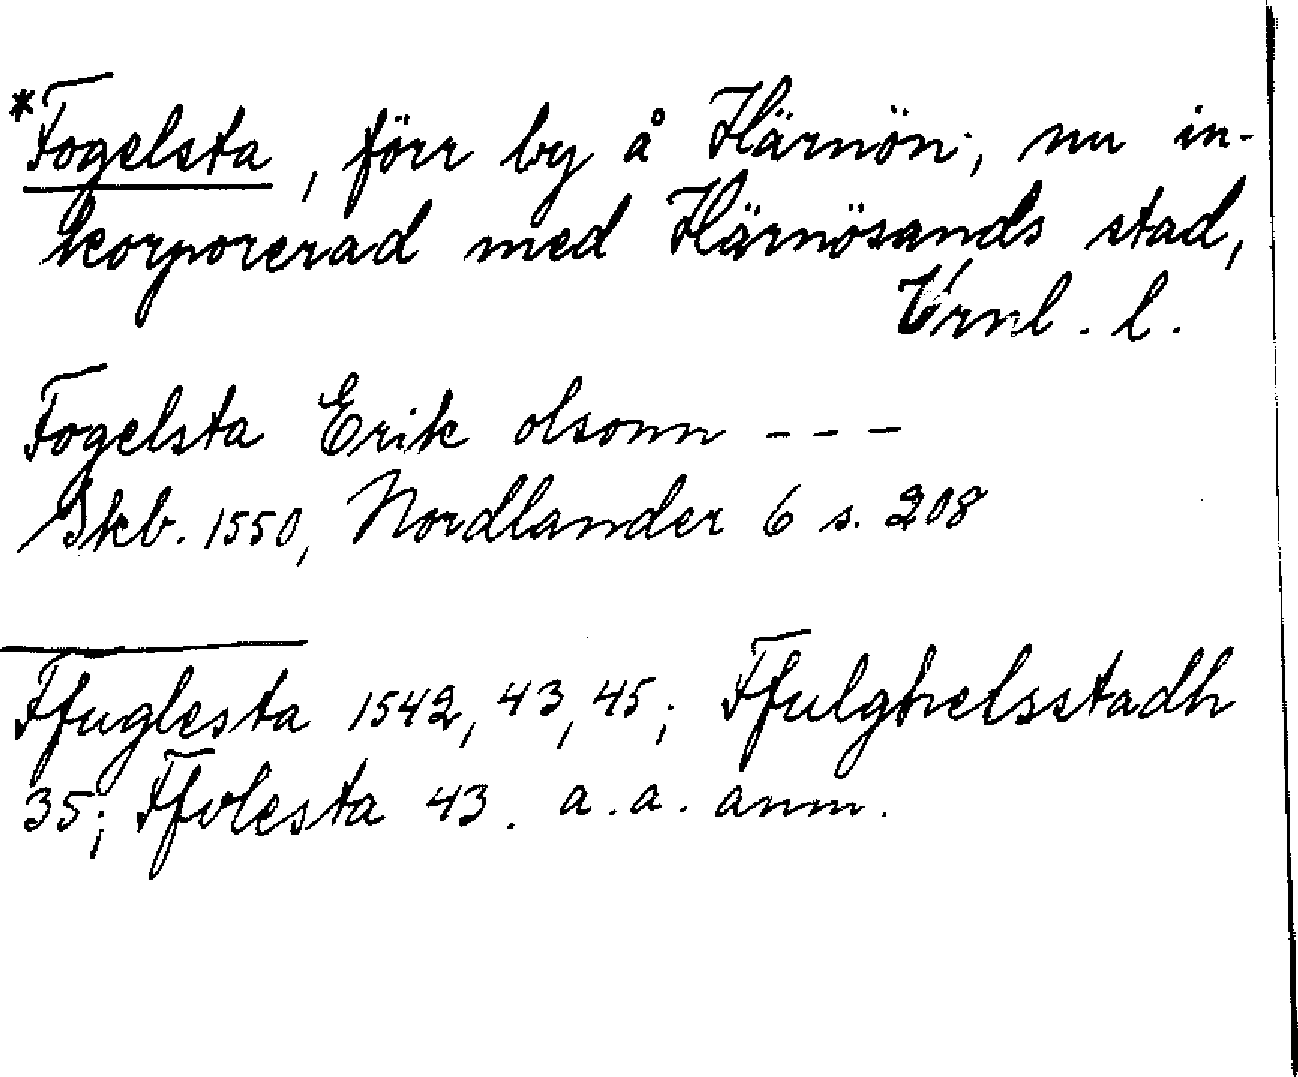 *Fogelsta, förr by å Härnön, nu in-
korporerad med Härnösands stad,
Vrnl. l.
Fogelsta Erik olsonn - - -
Skb. 1550, Nordlander 6 s. 208
Ffuglesta 1542, 43, 45; Ffulghelsstadh
35; Ffvlesta 43. a. a. anm.